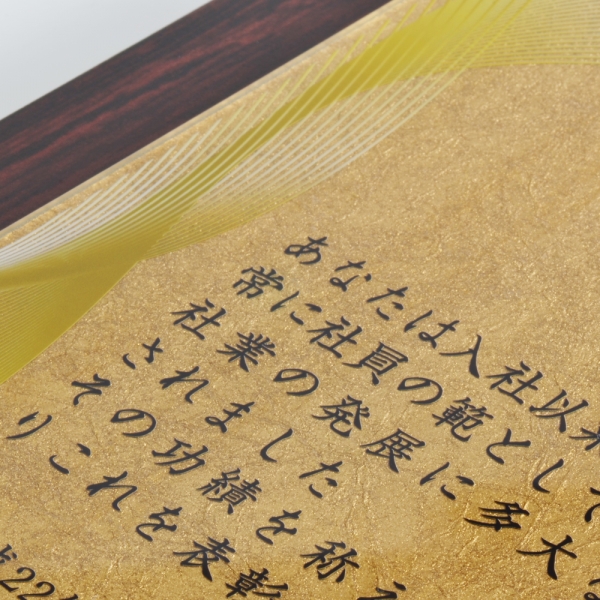 あなたは入社以来
常に社員の範として
社業の発展に多大
されました
その功績を称え
りこれを表彰
22